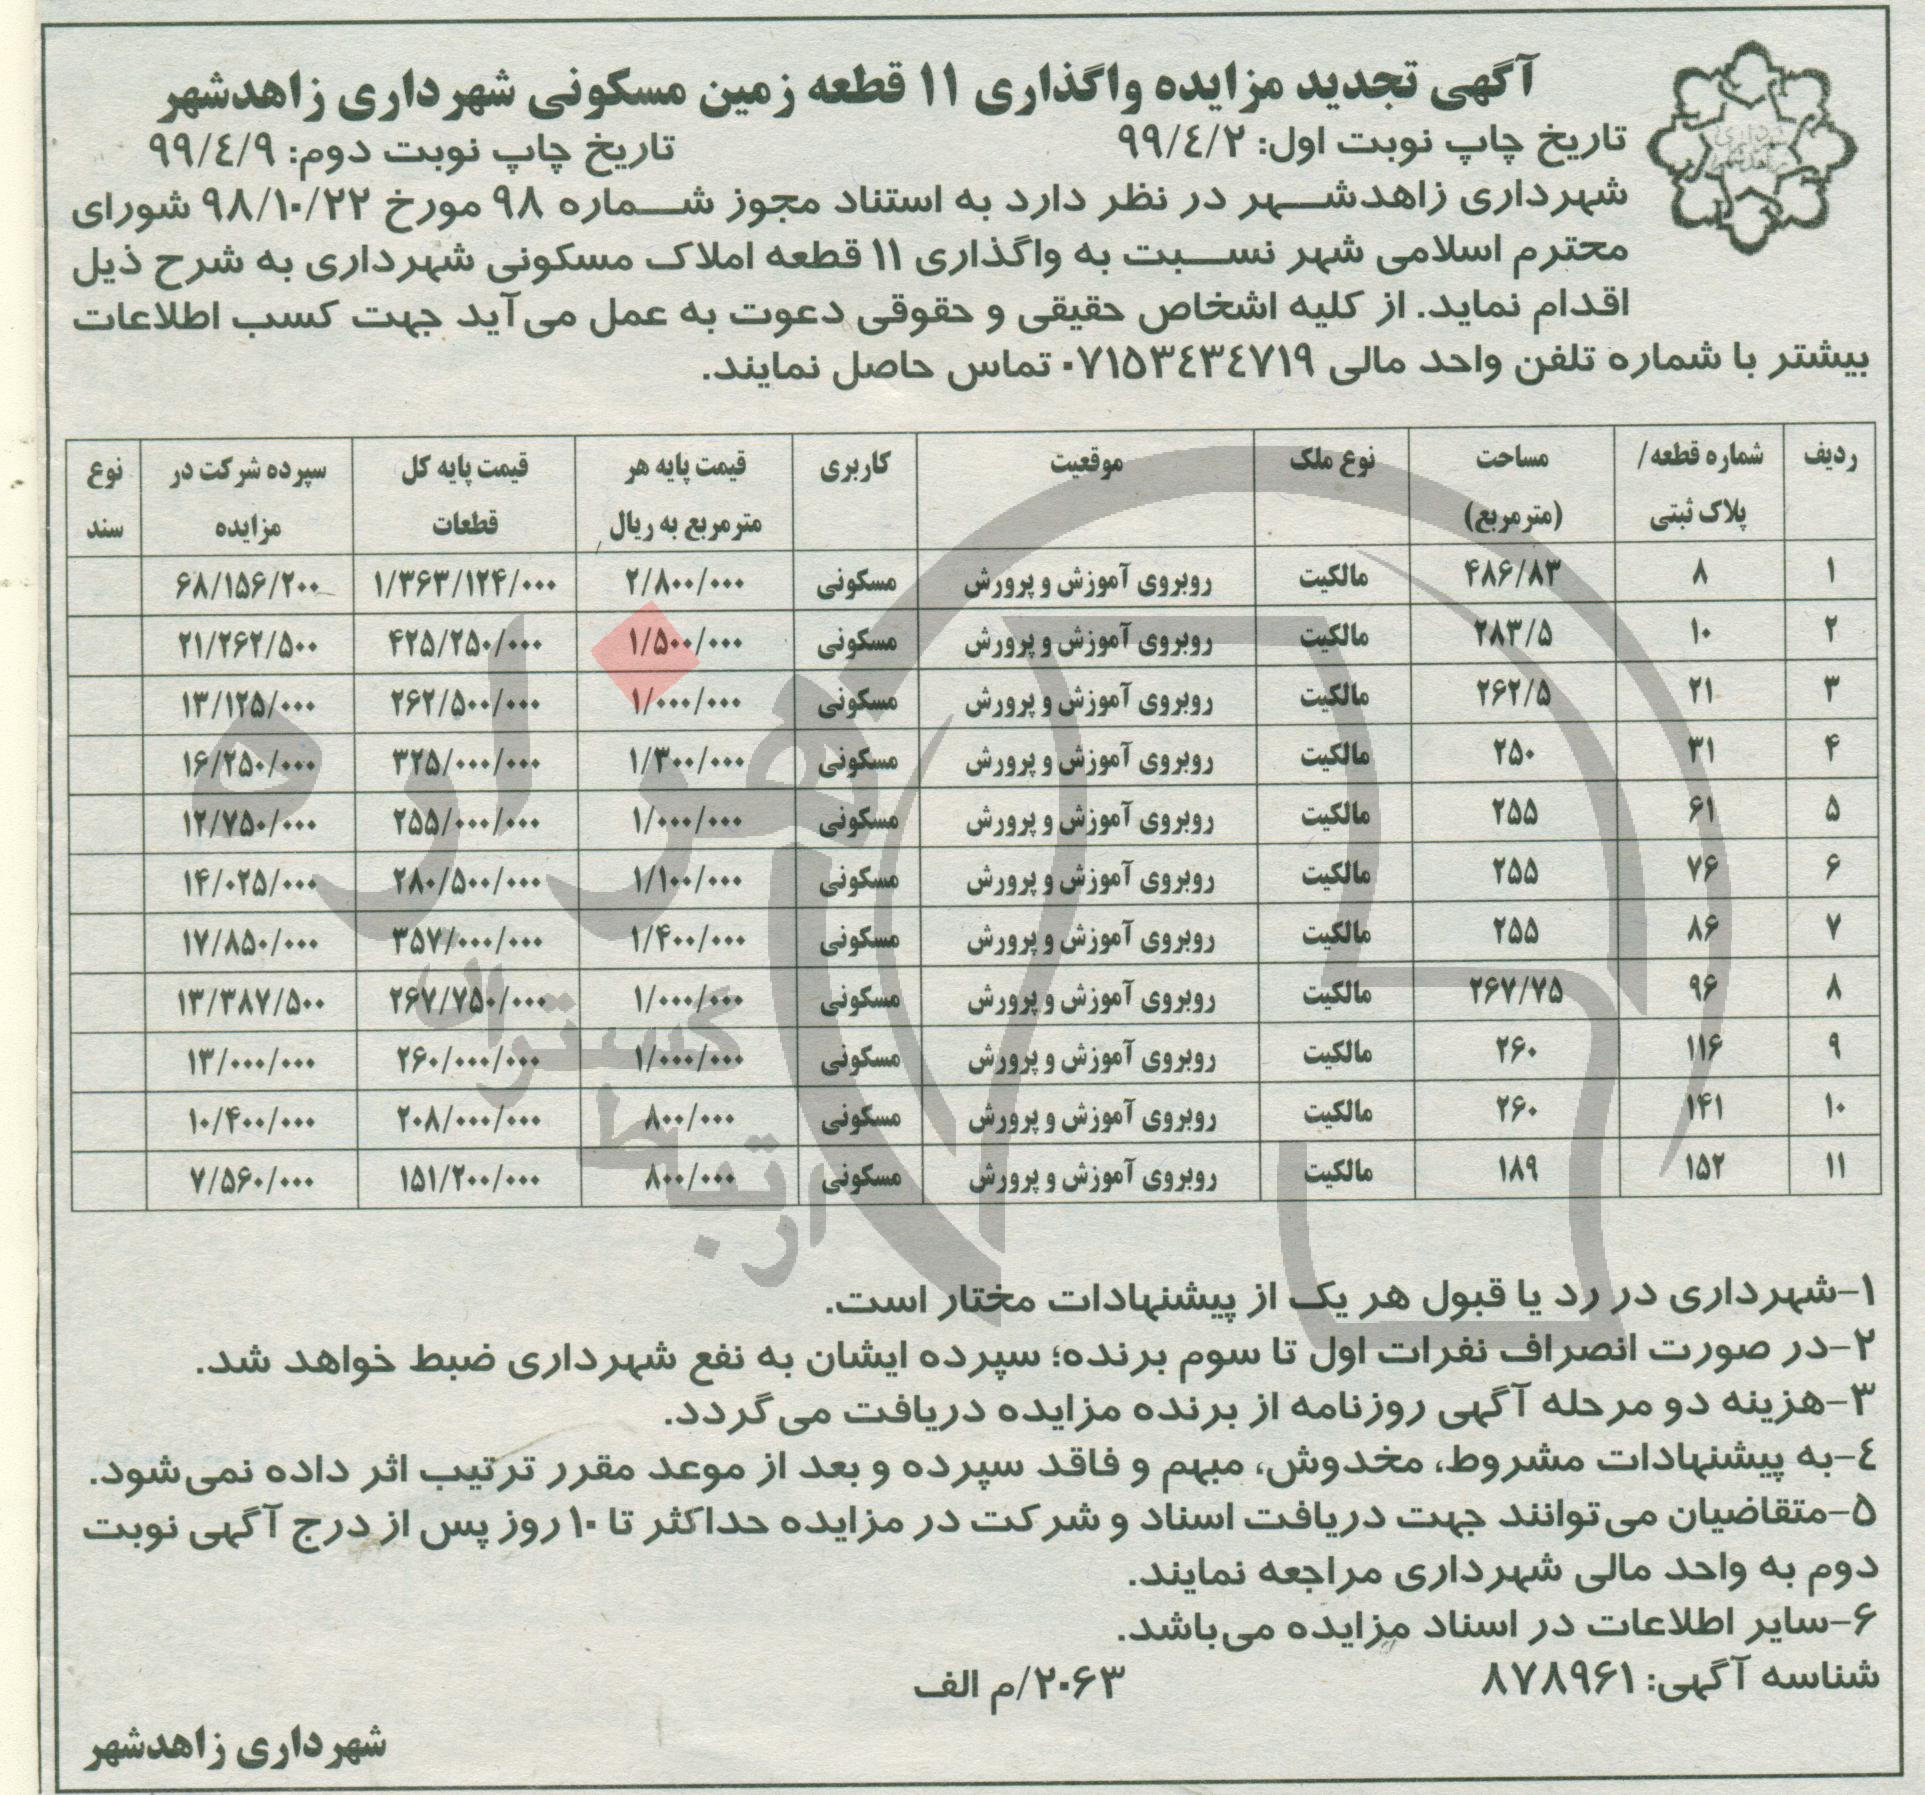 آگهی تجدید مزایده واگذاری ۱۱ قطعه زمین مسکونی شهرداری زاهدشهر
تاریخ چاپ نوبت اول: ۹۹/٤/۲ تاریخ چاپ نوبت دوم: ۹۹/٤/۹
شهرداری زاهدشهر در نظر دارد به استناد مجوز شماره ۹۸ مورخ ۹۸/۱۰/۲۲ شورای
محترم اسلامی شهر نسبت به واگذاری ۱۱ قطعه املاک مسکونی شهرداری به شرح ذیل
اقدام نماید. از کلیه اشخاص حقیقی و حقوقی دعوت به عمل می‌آید جهت کسب اطلاعات
بیشتر با شماره تلفن واحد مالی ۰۷۱۵۳٤۳٤۷۱۹ تماس حاصل نمایند.
ردیف شماره قطعه/ پلاک ثبتی مساحت (مترمربع) نوع ملک موقعیت کاربری قیمت پایه هر مترمربع به ریال قیمت پایه کل قطعات سپرده شرکت در مزایده نوع سند
۱ ۸ ۴۸۶/۸۳ مالکیت روبروی آموزش و پرورش مسکونی ۲/۸۰۰/۰۰۰ ۱/۳۶۳/۱۲۴/۰۰۰ ۶۸/۱۵۶/۲۰۰
۲ ۱۰ ۲۸۳/۵ مالکیت روبروی آموزش و پرورش مسکونی ۱/۵۰۰/۰۰۰ ۴۲۵/۲۵۰/۰۰۰ ۲۱/۲۶۲/۵۰۰
۳ ۲۱ ۲۶۲/۵ مالکیت روبروی آموزش و پرورش مسکونی ۱/۰۰۰/۰۰۰ ۲۶۲/۵۰۰/۰۰۰ ۱۳/۱۲۵/۰۰۰
۴ ۳۱ ۲۵۰ مالکیت روبروی آموزش و پرورش مسکونی ۱/۳۰۰/۰۰۰ ۳۲۵/۰۰۰/۰۰۰ ۱۶/۲۵۰/۰۰۰
۵ ۶۱ ۲۵۵ مالکیت روبروی آموزش و پرورش مسکونی ۱/۰۰۰/۰۰۰ ۲۵۵/۰۰۰/۰۰۰ ۱۲/۷۵۰/۰۰۰
۶ ۷۶ ۲۵۵ مالکیت روبروی آموزش و پرورش مسکونی ۱/۱۰۰/۰۰۰ ۲۸۰/۵۰۰/۰۰۰ ۱۴/۰۲۵/۰۰۰
۷ ۸۶ ۲۵۵ مالکیت روبروی آموزش و پرورش مسکونی ۱/۴۰۰/۰۰۰ ۳۵۷/۰۰۰/۰۰۰ ۱۷/۸۵۰/۰۰۰
۸ ۹۶ ۲۶۷/۷۵ مالکیت روبروی آموزش و پرورش مسکونی ۱/۰۰۰/۰۰۰ ۲۶۷/۷۵۰/۰۰۰ ۱۳/۳۸۷/۵۰۰
۹ ۱۱۶ ۲۶۰ مالکیت روبروی آموزش و پرورش مسکونی ۱/۰۰۰/۰۰۰ ۲۶۰/۰۰۰/۰۰۰ ۱۳/۰۰۰/۰۰۰
۱۰ ۱۴۱ ۲۶۰ مالکیت روبروی آموزش و پرورش مسکونی ۸۰۰/۰۰۰ ۲۰۸/۰۰۰/۰۰۰ ۱۰/۴۰۰/۰۰۰
۱۱ ۱۵۲ ۱۸۹ مالکیت روبروی آموزش و پرورش مسکونی ۸۰۰/۰۰۰ ۱۵۱/۲۰۰/۰۰۰ ۷/۵۶۰/۰۰۰
۱-شهرداری در رد یا قبول هر یک از پیشنهادات مختار است.
۲-در صورت انصراف نفرات اول تا سوم برنده؛ سپرده ایشان به نفع شهرداری ضبط خواهد شد.
۳-هزینه دو مرحله آگهی روزنامه از برنده مزایده دریافت می‌گردد.
٤-به پیشنهادات مشروط، مخدوش، مبهم و فاقد سپرده و بعد از موعد مقرر ترتیب اثر داده نمی‌شود.
۵-متقاضیان می‌توانند جهت دریافت اسناد و شرکت در مزایده حداکثر تا ۱۰ روز پس از درج آگهی نوبت
دوم به واحد مالی شهرداری مراجعه نمایند.
۶-سایر اطلاعات در اسناد مزایده می‌باشد.
شناسه آگهی: ۸۷۸۹۶۱ ۲۰۶۳/م الف
شهرداری زاهدشهر